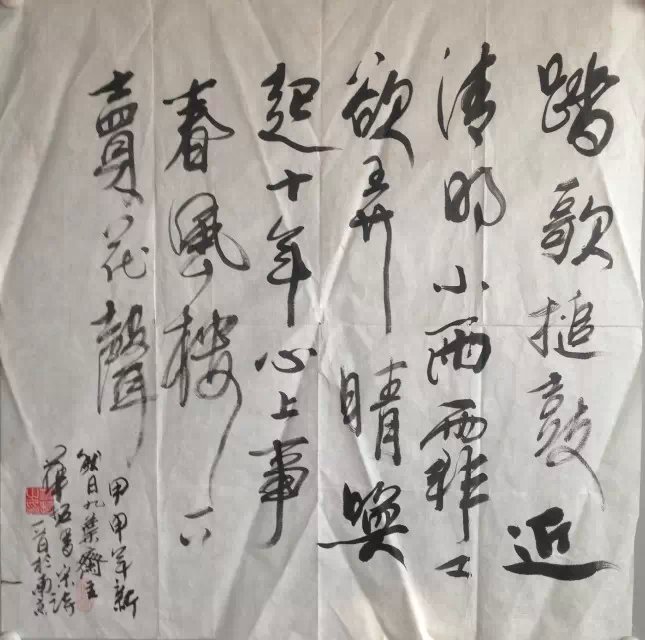 踏歌搥鼓近
清明小雨霏〻
欲弄晴喚
起十年心上事
春風樓下
賣花聲
甲申年新
秋日九葉齋主
書宋詩
一首於南京